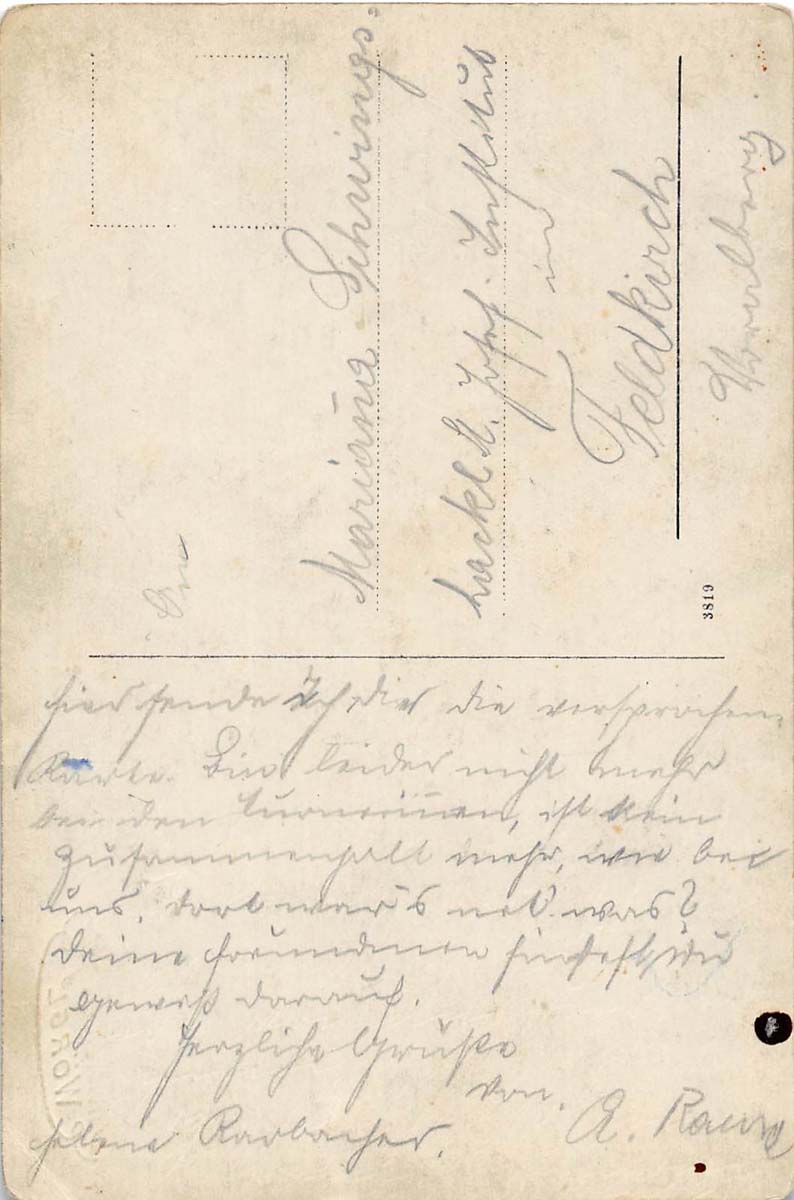 An
Mariana Schwings.
St. Josef. Institut
in
Feldkirch
Voralberg.
3819
hier sende ich dir die versprochene
Karte. Bin leider nicht mehr
bei den Turnerinnen, ist kein
Zusammenhalt mehr, wie bei
uns. dort war's net was?
Deine Freundinen findest du
gewiß darauf.
Herzliche Grüße
von.
Helene Rarbacher. A.